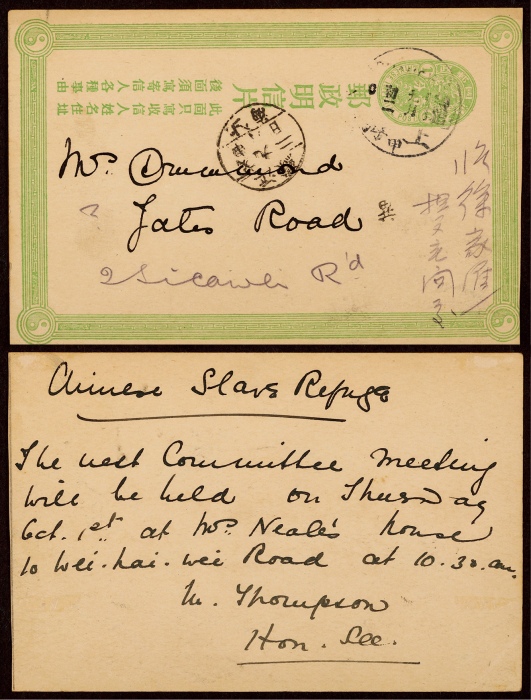 郵政明信片
此面只寓收信人姓名住址
後面須寓寄信人各種事由
上海
Mrs Drummond
Yates Road
2 Sicawei Rd
徐家匯
Chinese Slave Refuge
The next Committee meeting
will be held on Thursday
Oct. 1st at Mrs Neale's house
10 Wei-hai-wei Road at 10.30 am.
M. Thompson
Hon. Sec.